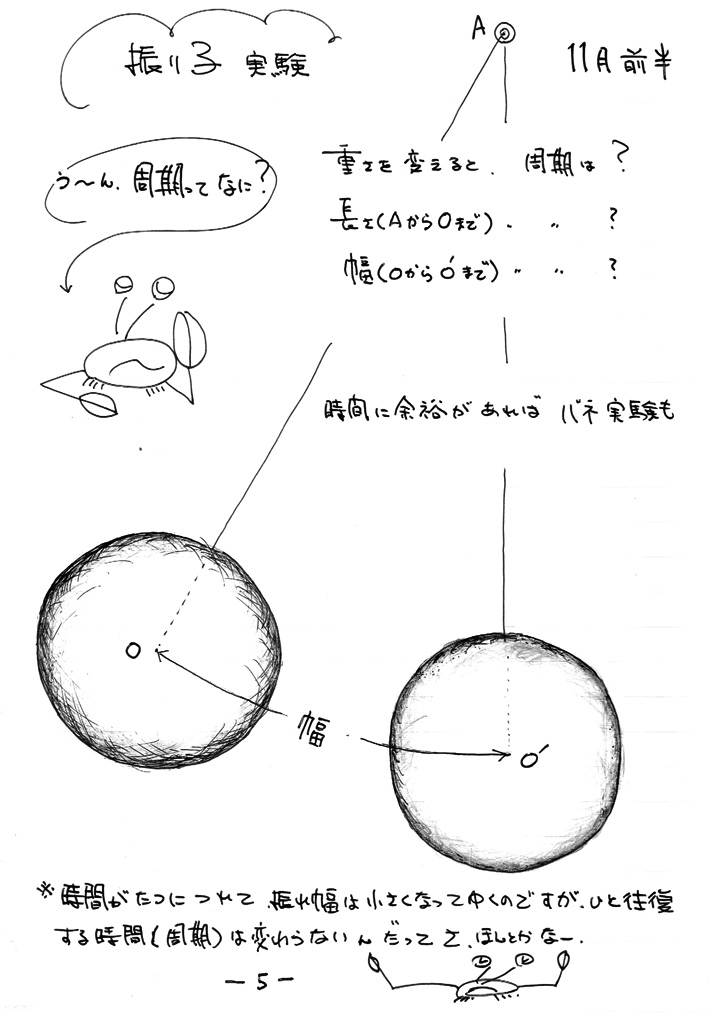 振り子 実験
A
11月 前半
う〜ん、周期ってなに？
重さを変えると、周期は？
長さ(AからOまで)、〃 〃 ？
幅(OからO′まで) 〃 〃 ？
時間に余裕があれば バネ実験も
O
幅
O′
※時間がたつにつれて 振れ幅は小さくなってゆくのですが、ひと往復
する時間(周期)は変わらないんだってさ、ほんとかなー.
－5－